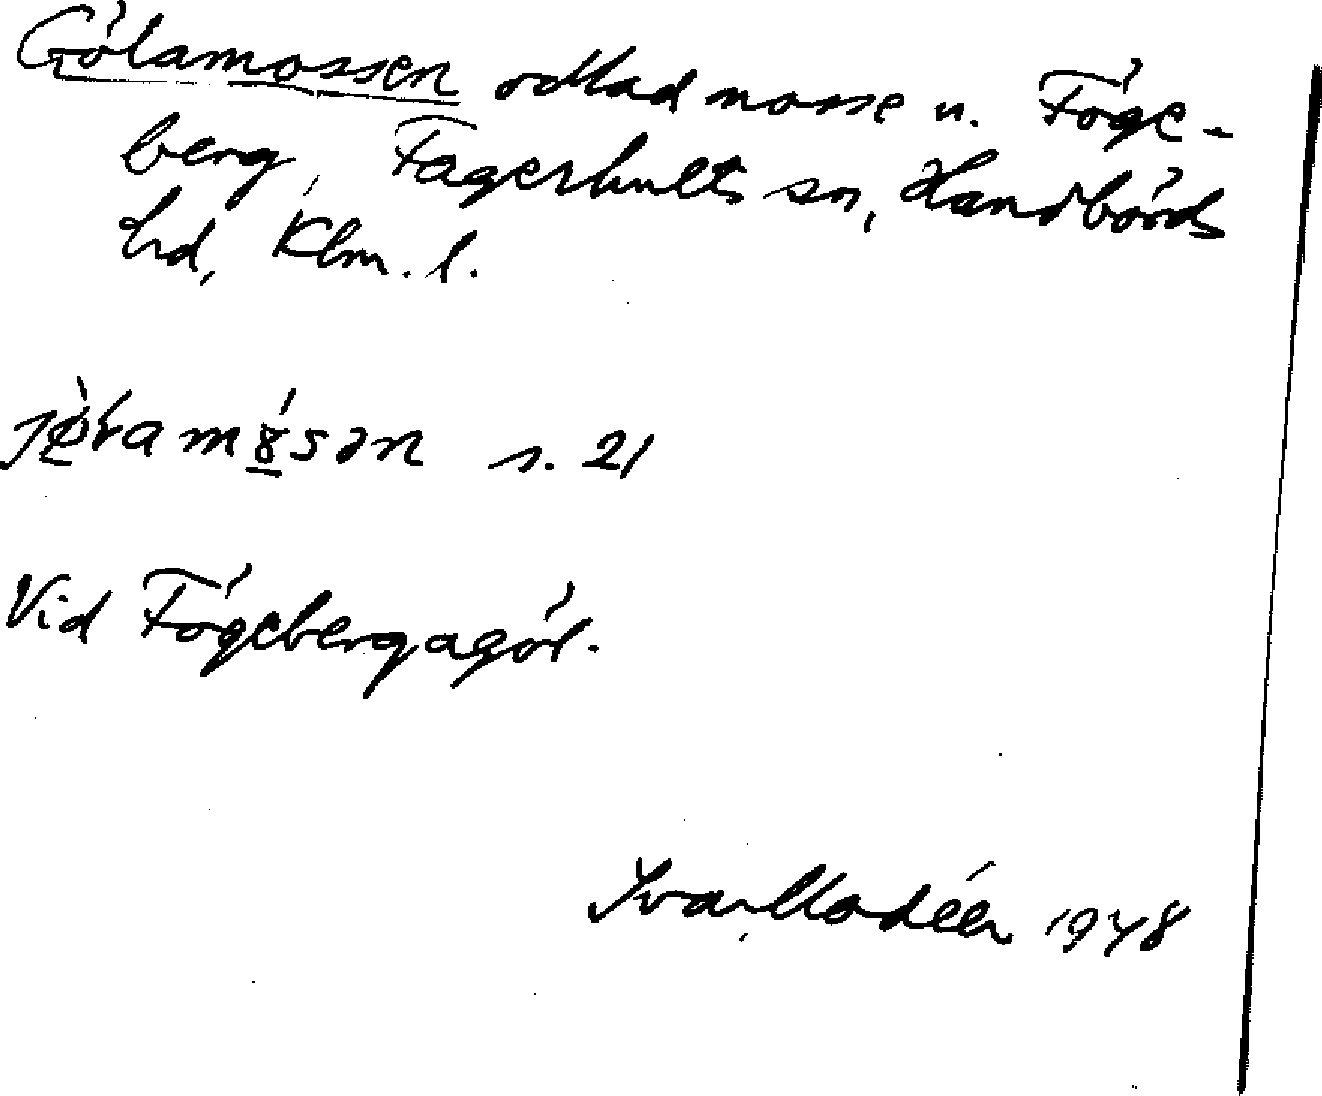 Gölamossen odlad mosse u. Föge-
berg, Fagerhults sn, Handbörds
hd, Klm. l.
s. 21
Vid Fögebergagöl.
Ivar Modéer 1948